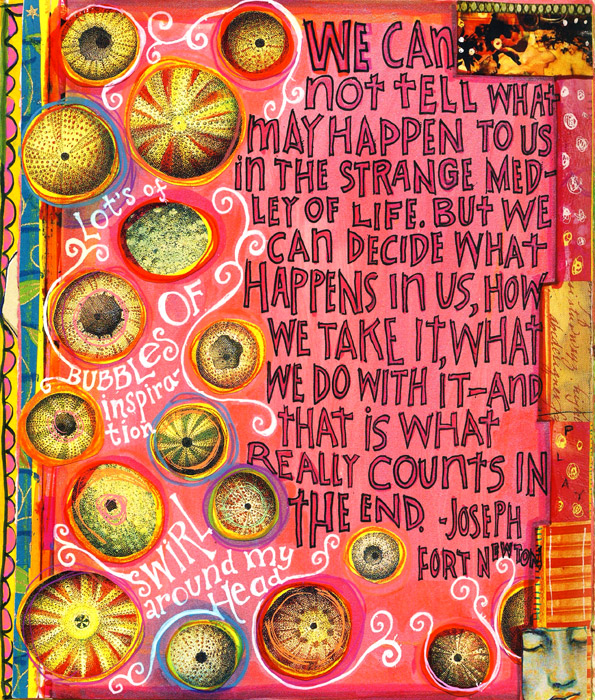 WE CAN
NOT TELL WHAT
MAY HAPPEN TO US
IN THE STRANGE MED-
LEY OF LIFE. BUT WE
CAN DECIDE WHAT
HAPPENS IN US, HOW
WE TAKE IT, WHAT
WE DO WITH IT—AND
THAT IS WHAT
REALLY COUNTS IN
THE END. -JOSEPH
FORT NEWTON
LOT'S of
BUBBLES OF
inspira-
tion
SWIRL
around my
Head
PLAY